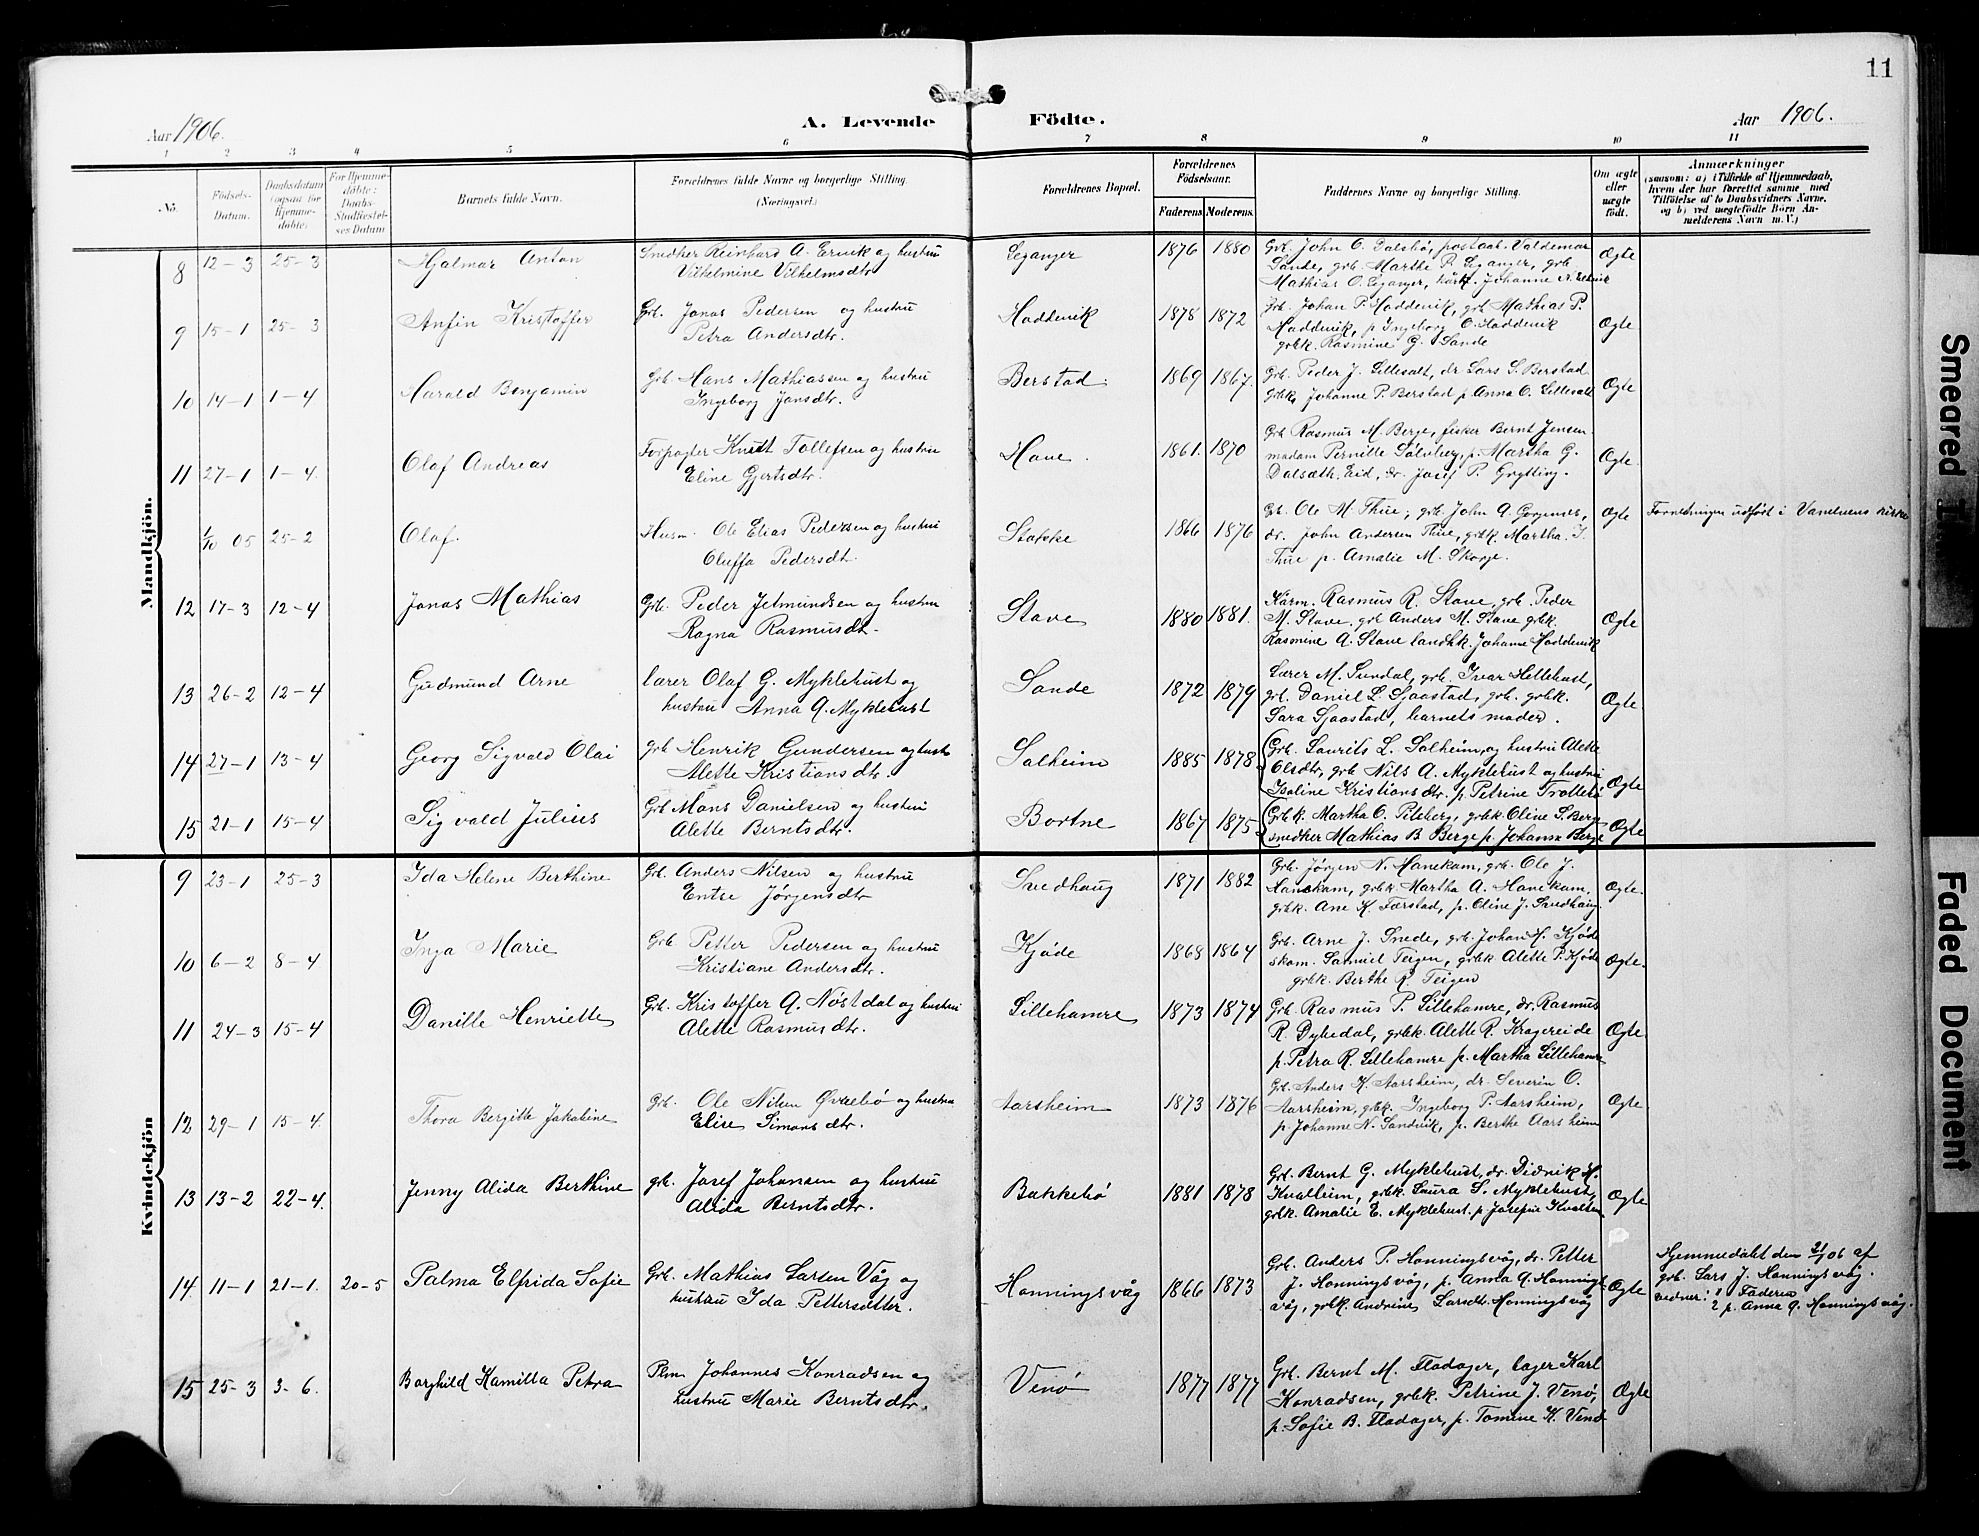 11
Aar 1906.
A. Levende Födte.
Aar 1906.
1 2 3 4 5 6 7 8 9 10 11
No.
Födsels-Datum.
Daabsdatum (ogsaa for Hjemmedöbte)
For Hjemmedöbte: Daabs-Stadfæstelses Datum
Barnets fulde Navn.
Forældrenes fulde Navne og borgerlige Stilling. (Næringsvei.)
Forældrenes Bopæl.
Forældrenes Födselsaar.
Faderens. Moderens.
Faddernes Navne og borgerlige Stilling.
Om ægte eller uægte födt.
Anmærkninger
(saasom: a) i Tilfælde af Hjemmedaab,
hvem der har forrettet samme, med
Tilföielse af to Daabsvidners Navne,
og b) ved uægtefödte Börn An-
melderens Navn m. V.)
Mandkjön.
8 12-3 25-3 Hjalmar Anton
Snedker Reinhard A. Ervik og hustru
Vilhelmine Vilhelmsdtr
Leganger 1876 1880
Grb. John O. Dalsbö, postaab. Valdemar
Sande, grb. Marthe P. Leganger, grb
Mathias O. Leganger, Johanne A. Ervik
Ægte
9 15-1 25-3 Anfin Kristoffer
Grb. Jonas Pedersen og hustru
Petra Andersdtr.
Hoddevik 1878 1872
Grb. Johan P. Hoddevik, grb Mathias P.
Hoddevik, p Ingeborg O. Hoddevik
grbk. Rasmine G. Sande
Ægte
10 14-1 1-4 Harald Benjamin
Grb. Hans Mathiassen og hustru
Ingeborg Jonsdtr.
Berstad. 1869 1867.
Grb. Peder J. Lillesalt, dr Lars S. Berstad
Grbk. Johanne P. Berstad p. Anna O. Lillesalt
Ægte
11 27-1 1-4. Olaf Andreas
Forpagter Knut Tollefsen og hustru
Eline Gjertsdtr.
Hove. 1861. 1870
Grb Rasmus M. Berge, fisker Bernt Jensen
madam Pernille Sölvberg, p. Martha G.
Dalsæth. Eid, dr. Josef P. Grytting.
Ægte
1/10 05 25-2 Olaf.
Husm. Ole Elias Pedersen og hustru
Oluffa Pedersdt.
1866 1876
Gb. Ole M. Thue, grb. John A.
dr. John Andersen Thue, grbk. Martha. J.
Thue p. Amalie M. Skorge.
Ægte
Forretningen udfört i Vanelvens kirke
12 17-3 12-4 Jonas Mathias
Grb. Peder Jetmundsen og hustru
Ragna Rasmusdt.
Stave 1880 1881.
Kårm. Rasmus R. Stave, grb. Peder
M. Stave, grb Anders M. Stave grbk.
Rasmine A. Stave landhk. Johanne Hoddevik
Ægte
13 26-2 12-4 Gudmund Arne
lærer Olaf G. Myklebust og
hustru Anna A. Myklebust
Sande 1872 1879
Lærer M. Sundal, grb. Ivar Hellebust,
grb. Daniel L. Sjaastad, grb. grbk.
Sara Sjaastad, barnets moder.
Ægte
14 27-1 13-4 Georg Sigvald Olai
Grb Henrik Gundersen og hustr
Alette Kristiansdtr.
Salheim 1885 1878
Grb. Laurits L. Salheim, og hustru Alette
Olsdtr, grb Nils A. Myklebust og hustru
Isaline Kristiansdtr. p. Petrine Trotterö
Ægte
15 21-1 15-4 Sigvald Julius
Grb Måns Danielsen og hustru
Alette Berntsdtr.
Bortne 1867 1875
Grbk. Martha O. Pilsberg, grbk Oline S. Berge
snedker Mathias B Berge p. Johanna Berge
Ægte
Kvindekjön
9 23-1 25-3 Ida Helene Berthine
Grb. Anders Nilsen og hustru
Entse Jörgensdtr
Snedhaug 1871 1882
Grb. Jörgen N. Hanekam, grb. Ole J.
Hanekam, grbk. Martha A. Hanekam,
grbk. Ane K. Færstad, p. Oline J. Snedhaug.
Ægte.
10 6-2 8-4 Inga Marie
Grb Petter Pedersen og hustru
Kristiane Andersdtr.
Kjöde 1868 1864
Grb. Arne J. Snede, grb. Johan H. Kjöde
skom. Samuel Teigen, grbk Alette P. Kjöde
grbk. Berthe R. Teigen
Ægte.
11 24-3 15-4 Danille Henriette
Grb. Kristoffer A. Nöstdal og hustru
Alette Rasmusdtr.
Lillehamre 1873 1874
Grb. Rasmus P. Lillehamre, dr. Rasmus
R. Dybedal, grbk. Alette R. Krogereide
p. Petra R. Lillehamre p. Martha Lillehamre
Ægte
12 29-1 15-4. Thora Bergitte Jakobine
Grb. Ole Nilsen Övrebö og hustru
Elise Simonsdtr.
Aarsheim 1873 1876
Grb. Anders K. Aarsheim, dr. Severin O.
Aarsheim, grbk. Ingeborg P. Aarsheim,
p. Johanne N. Sandvik, p. Berthe Aarsheim
Ægte.
13 13-2 22-4. Jenny Alida Berthine
grb. Josef Johansen og hustru
Alida Berntsdtr.
Bakkebö 1881 1878
Grb. Bernt G. Myklebust, dr. Didrik H.
Kvalheim, grbk. Laura S. Myklebust,
grbk. Amalie E. Myklebust. p. Josefine Kvalheim
Ægte
14 11-1 21-1. 20-5 Palma Elfrida Sofie
Grb. Mathias Larsen Våg og
hustru Ida Pettersdtter.
Honningsvåg 1866 1873
Grb. Anders P. Honningsvåg, dr. Petter
J. Honningsvåg, p. Anna A. Honnings-
våg, grbk. Andrine Larsdt. Honningsvåg
Ægte
Hjemmedöbt den 21/1 06 af
grb. Lars J. Honningsvåg.
Vidner: 1 Faderen
2 p. Anna A. Honningsvåg.
15 25-3 3-6. Borghild Kamilla Petra
Plm Johannes Konradsen og
hustru Marie Berntsdtr.
Venö 1877 1877
Grb. Bernt M. Fladager, bager Karl
Konradsen, grbk. Petrine J. Venö,
p. Sofie B. Fladager, p. Tomine K. Venö
Ægte
Smeared
Faded Document